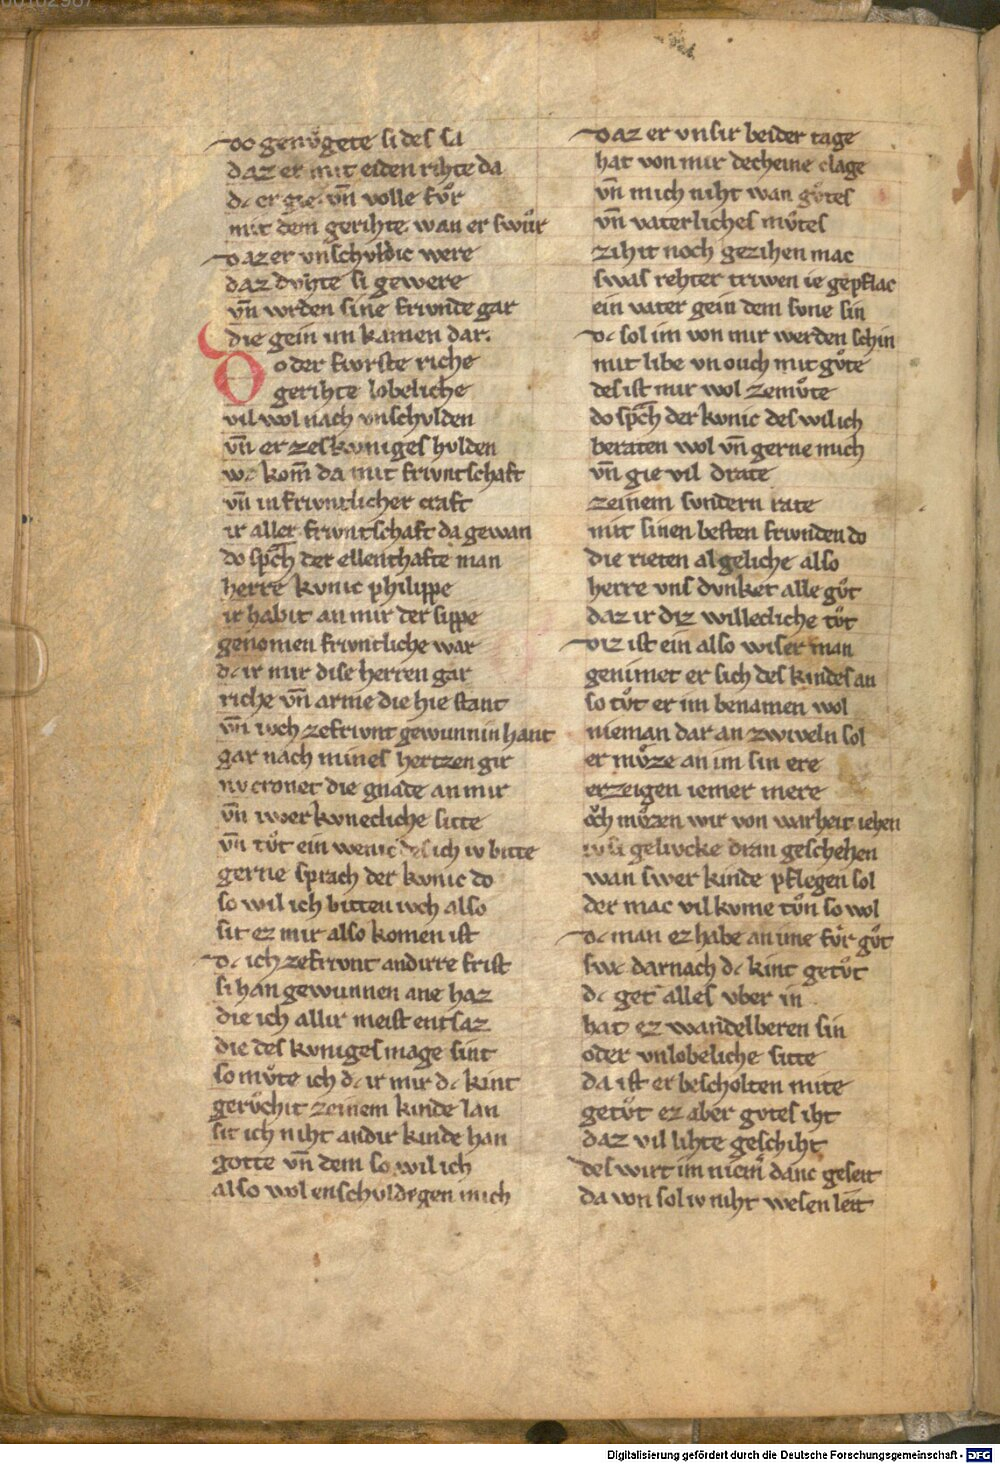 do genuͤgete si des sa
daz er mit eiden rihte da
dc er gie vn̄ volle fuͤr
mit dem gerihte. wan er swuͤr
daz er vnschvldic were
daz dvhte si gewere
vn̄ wrden sine frivnde gar
die gein im kamen dar.
Do der fvrste riche
gerihte lobeliche
vil wol nach vnschvlden
vn̄ er zes kvniges hvlden
wc kom̄ da mit frivntschaft
vn̄ in frivntlicher craft
ir aller frivntschaft da gewan
do sp̄ch der ellenthafte man
herre kvnic philippe
ir habit an mir der sippe
genomen frivntliche war
dc ir mir dise herren gar
riche vn̄ arme die hie stant
vn̄ ivch zefrivnt gewunnin hant
gar nach mines hertzen gir
nv cronet die gnade an mir
vn̄ iwer kvnecliche sitte
vn̄ tuͦt ein wenic des ich iv bitte
gerne sprach der kvnic do
so wil ich bitten ivch also
sit ez mir also komen ist
dc ich zefrivnt an dirre frist
si han gewunnen ane haz
die ich allir meist entsaz
die des kvniges mage sint
so mvͤte ich dc ir mir dc kint
gervͤchit zeinem kinde lan
sit ich niht andir kinde han
gotte vn̄ dem so wil ich
also wol enschvldegen mich
daz er vnsir beider tage
hat von mir decheine clage
vn̄ mich niht wan guͦtes
vn̄ vaterliches muͦtes
zihit noch gezihen mac
swas rehter trwen ie gepflac
ein vater gein dem svne sin
dc sol im von mir werden schin
mit libe vn ouch mit guͦte
des ist mir wol zemuͦte
do sp̄ch der kvnic des wil ich
beraten wol vn̄ gerne mich
vn̄ gie vil drate
zeinem svndern rate
mit sinen besten frivnden do
die rieten al geliche also
herre vns dvnket alle guͦt
daz ir diz willecliche tuͦt
diz ist ein also wiser man
genimet er sich des kindes an
so tuͦt er im benamen wol
nieman dar an zwiveln sol
er mvͤze an im sin ere
erzeigen iemer mere
oͮch mvͤzen wir von warheit iehen
iv si gelvcke dran geschehen
wan swer kinde pflegen sol
der mac vil kvme tuͦn so wol
dc man ez habe an ime fuͤr guͦt
swc darnach dc kint getuͦt
dc get alles vber in
hat ez wandelberen sin
oder vnlobeliche sitte
da ist er bescholten mite
getuͦt ez aber gvtes iht
daz vil lihte geschiht
des wirt im niem̄ danc geseit
da von sol iv niht wesen leit
Digitalisierung gefördert durch die Deutsche Forschungsgemeinschaft - DFG